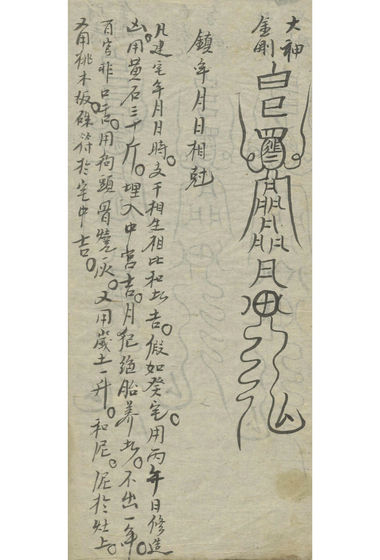 大神
金剛
鎮年月日相尅
凡建宅年月日時。支干相生相比和者吉。假如癸宅用丙年日修造
凶用黃石三十斤。埋入中宮吉。月犯絕胎養者。不出一年。
有官非口舌。用狗頭骨燒灰。又用歲土一升。和泥。泥於灶上。
又用桃木板硃符於宅中吉。